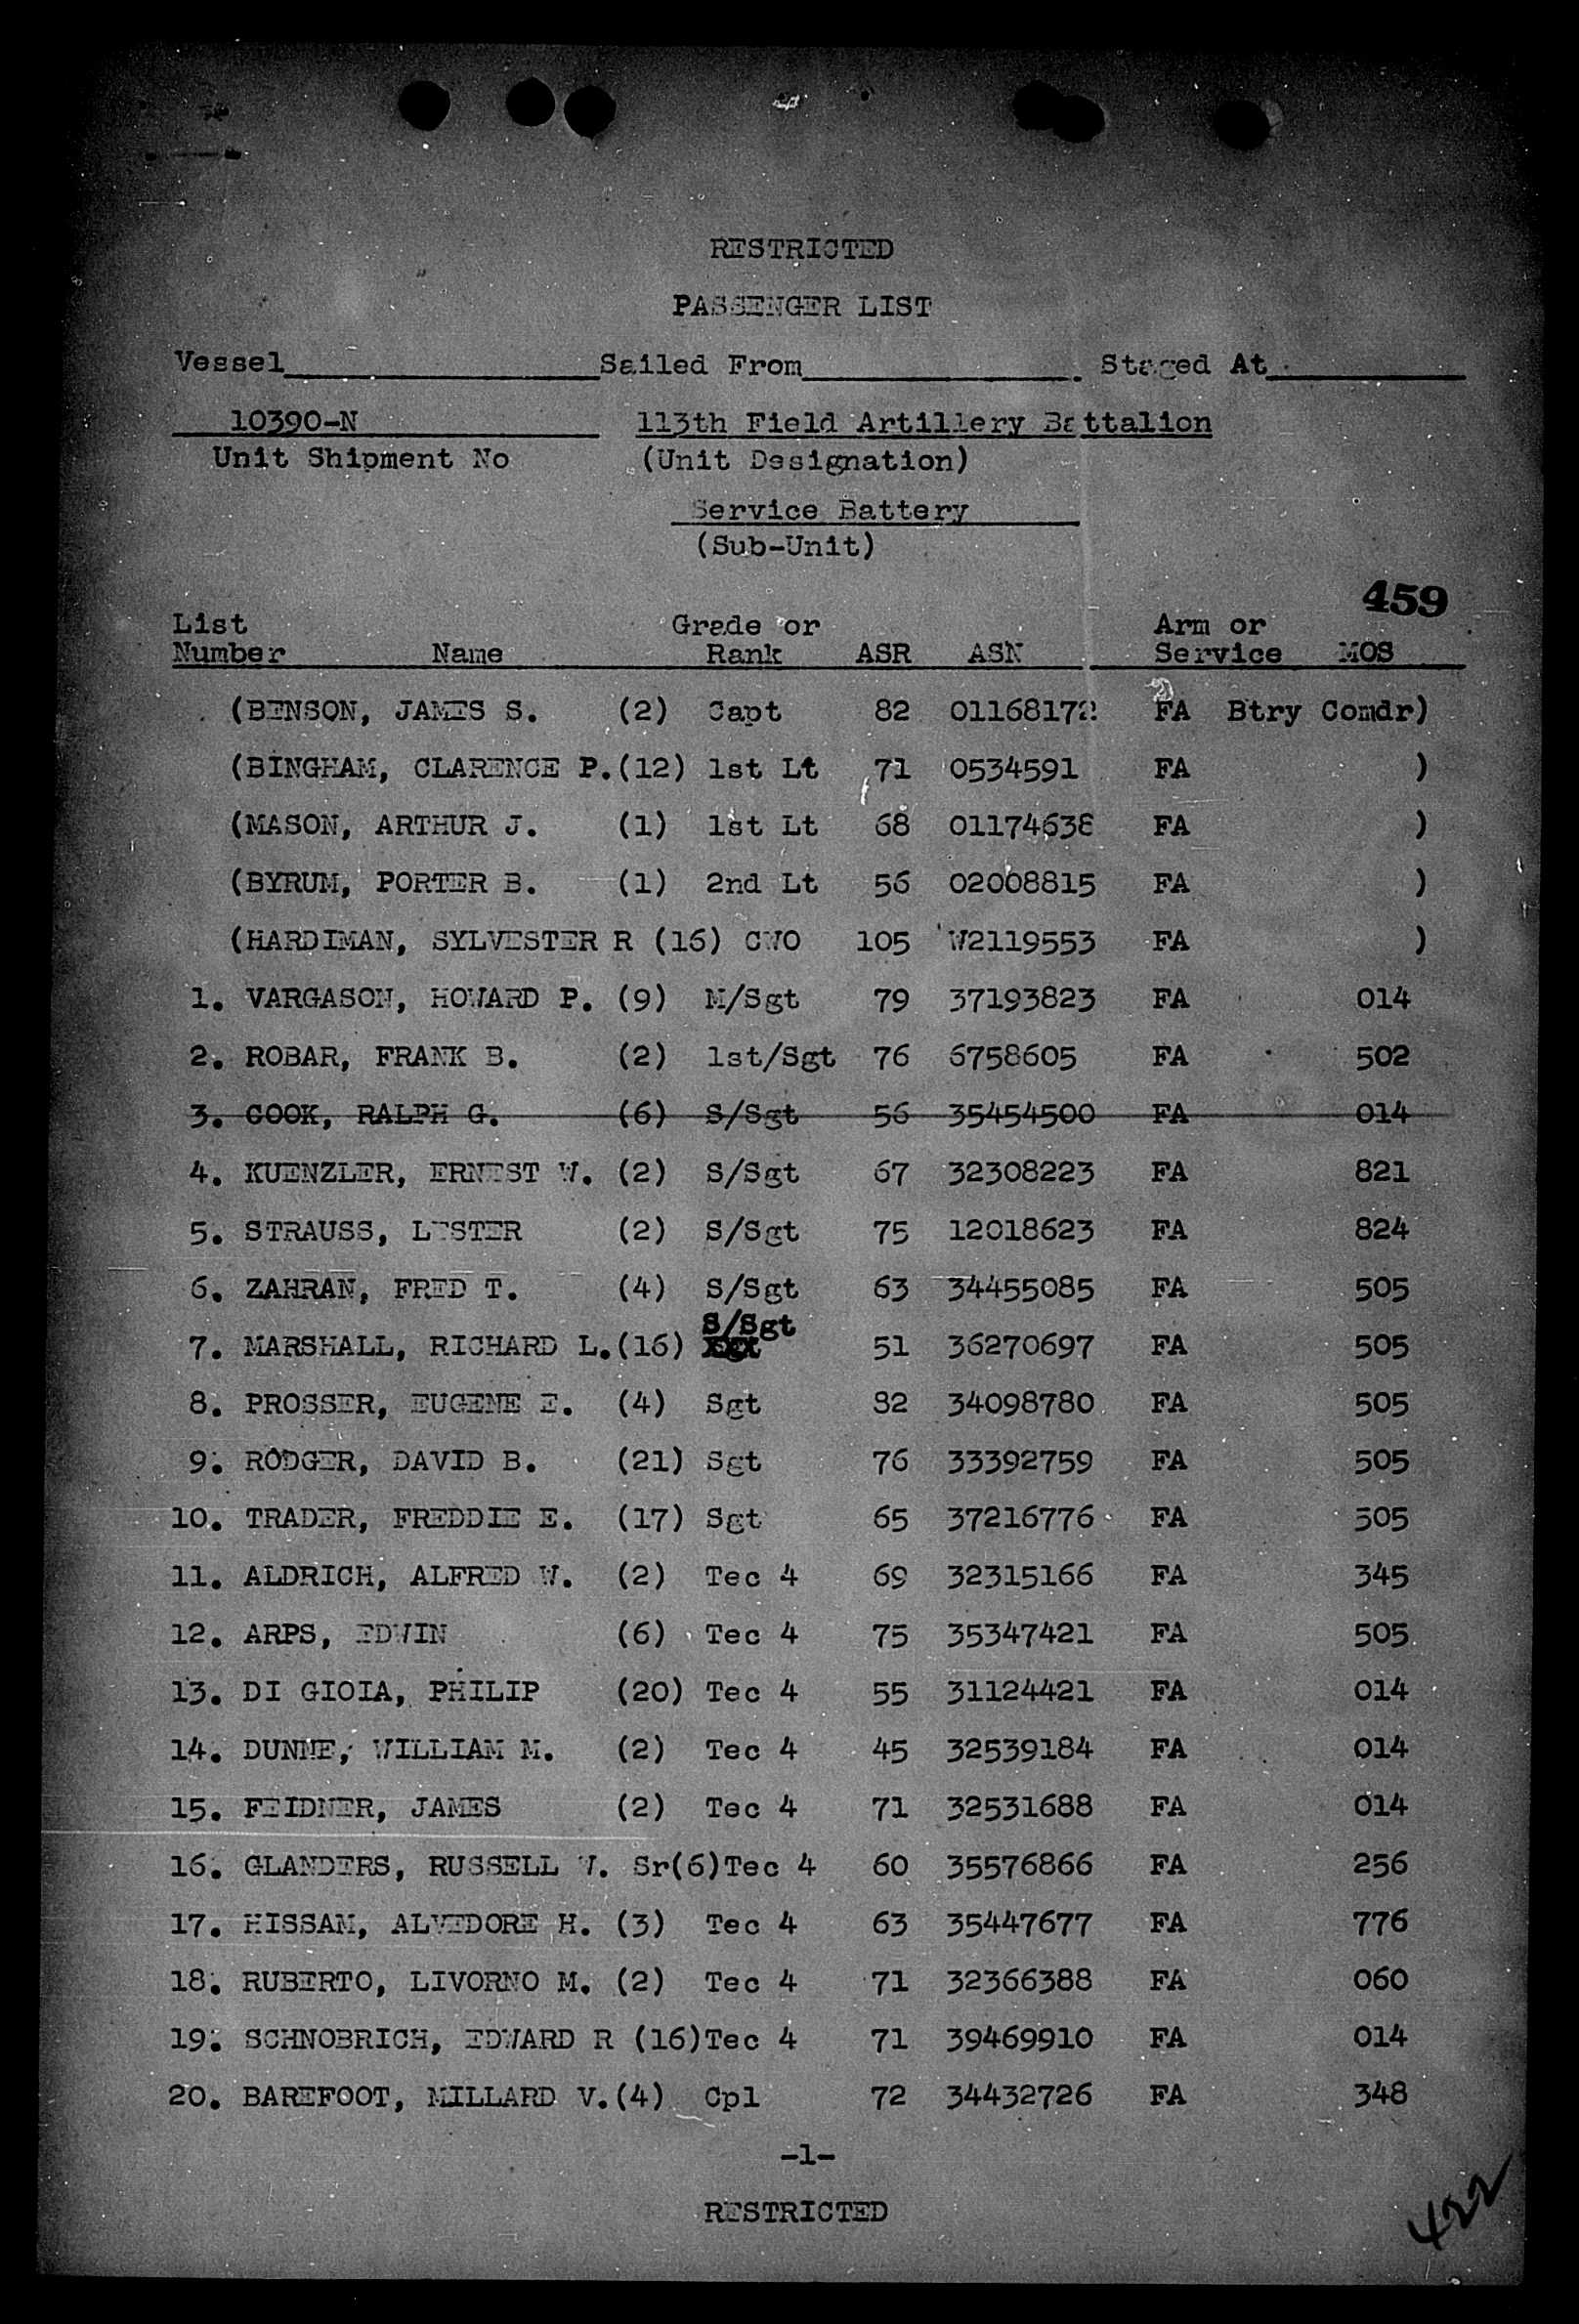 RESTRICTED
PASSENGER LIST
Vessel Sailed From Staged At
10390-N 113th Field Artillery Battalion
Unit Shipment No (Unit Designation)
Service Battery
(Sub-Unit)
459
List Grade or Arm or
Number Name Rank ASR ASN Service MOS
(BENSON, JAMES S. (2) Capt 82 01168172 FA Btry Comdr)
(BINGHAM, CLARENCE P.(12) 1st Lt 71 0534591 FA )
(MASON, ARTHUR J. (1) 1st Lt 68 01174638 FA )
(BYRUM, PORTER B. (1) 2nd Lt 56 02008815 FA )
(HARDIMAN, SYLVESTER R (16) CWO 105 W2119553 FA )
1. VARGASON, HOWARD P. (9) M/Sgt 79 37193823 FA 014
2. ROBAR, FRANK B. (2) 1st/Sgt 76 6758605 FA 502
3. COOK, RALPH G. (6) S/Sgt 56 35454500 FA 014
4. KUENZLER, ERNEST W. (2) S/Sgt 67 32308223 FA 821
5. STRAUSS, LESTER (2) S/Sgt 75 12018623 FA 824
6. ZAHRAN, FRED T. (4) S/Sgt 63 34455085 FA 505
S/Sgt
7. MARSHALL, RICHARD L.(16) 51 36270697 FA 505
8. PROSSER, EUGENE E. (4) Sgt 82 34098780 FA 505
9. RODGER, DAVID B. (21) Sgt 76 33392759 FA 505
10. TRADER, FREDDIE E. (17) Sgt 65 37216776 FA 505
11. ALDRICH, ALFRED W. (2) Tec 4 69 32315166 FA 345
12. ARPS, EDWIN (6) Tec 4 75 35347421 FA 505
13. DI GIOIA, PHILIP (20) Tec 4 55 31124421 FA 014
14. DUNNE, WILLIAM M. (2) Tec 4 45 32539184 FA 014
15. FEIDNER, JAMES (2) Tec 4 71 32531688 FA 014
16. GLANDERS, RUSSELL W. Sr(6)Tec 4 60 35576866 FA 256
17. HISSAM, ALVEDORE H. (3) Tec 4 63 35447677 FA 776
18. RUBERTO, LIVORNO M. (2) Tec 4 71 32366388 FA 060
19. SCHNOBRICH, EDWARD R (16)Tec 4 71 39469910 FA 014
20. BAREFOOT, MILLARD V.(4) Cpl 72 34432726 FA 348
-1-
RESTRICTED
422